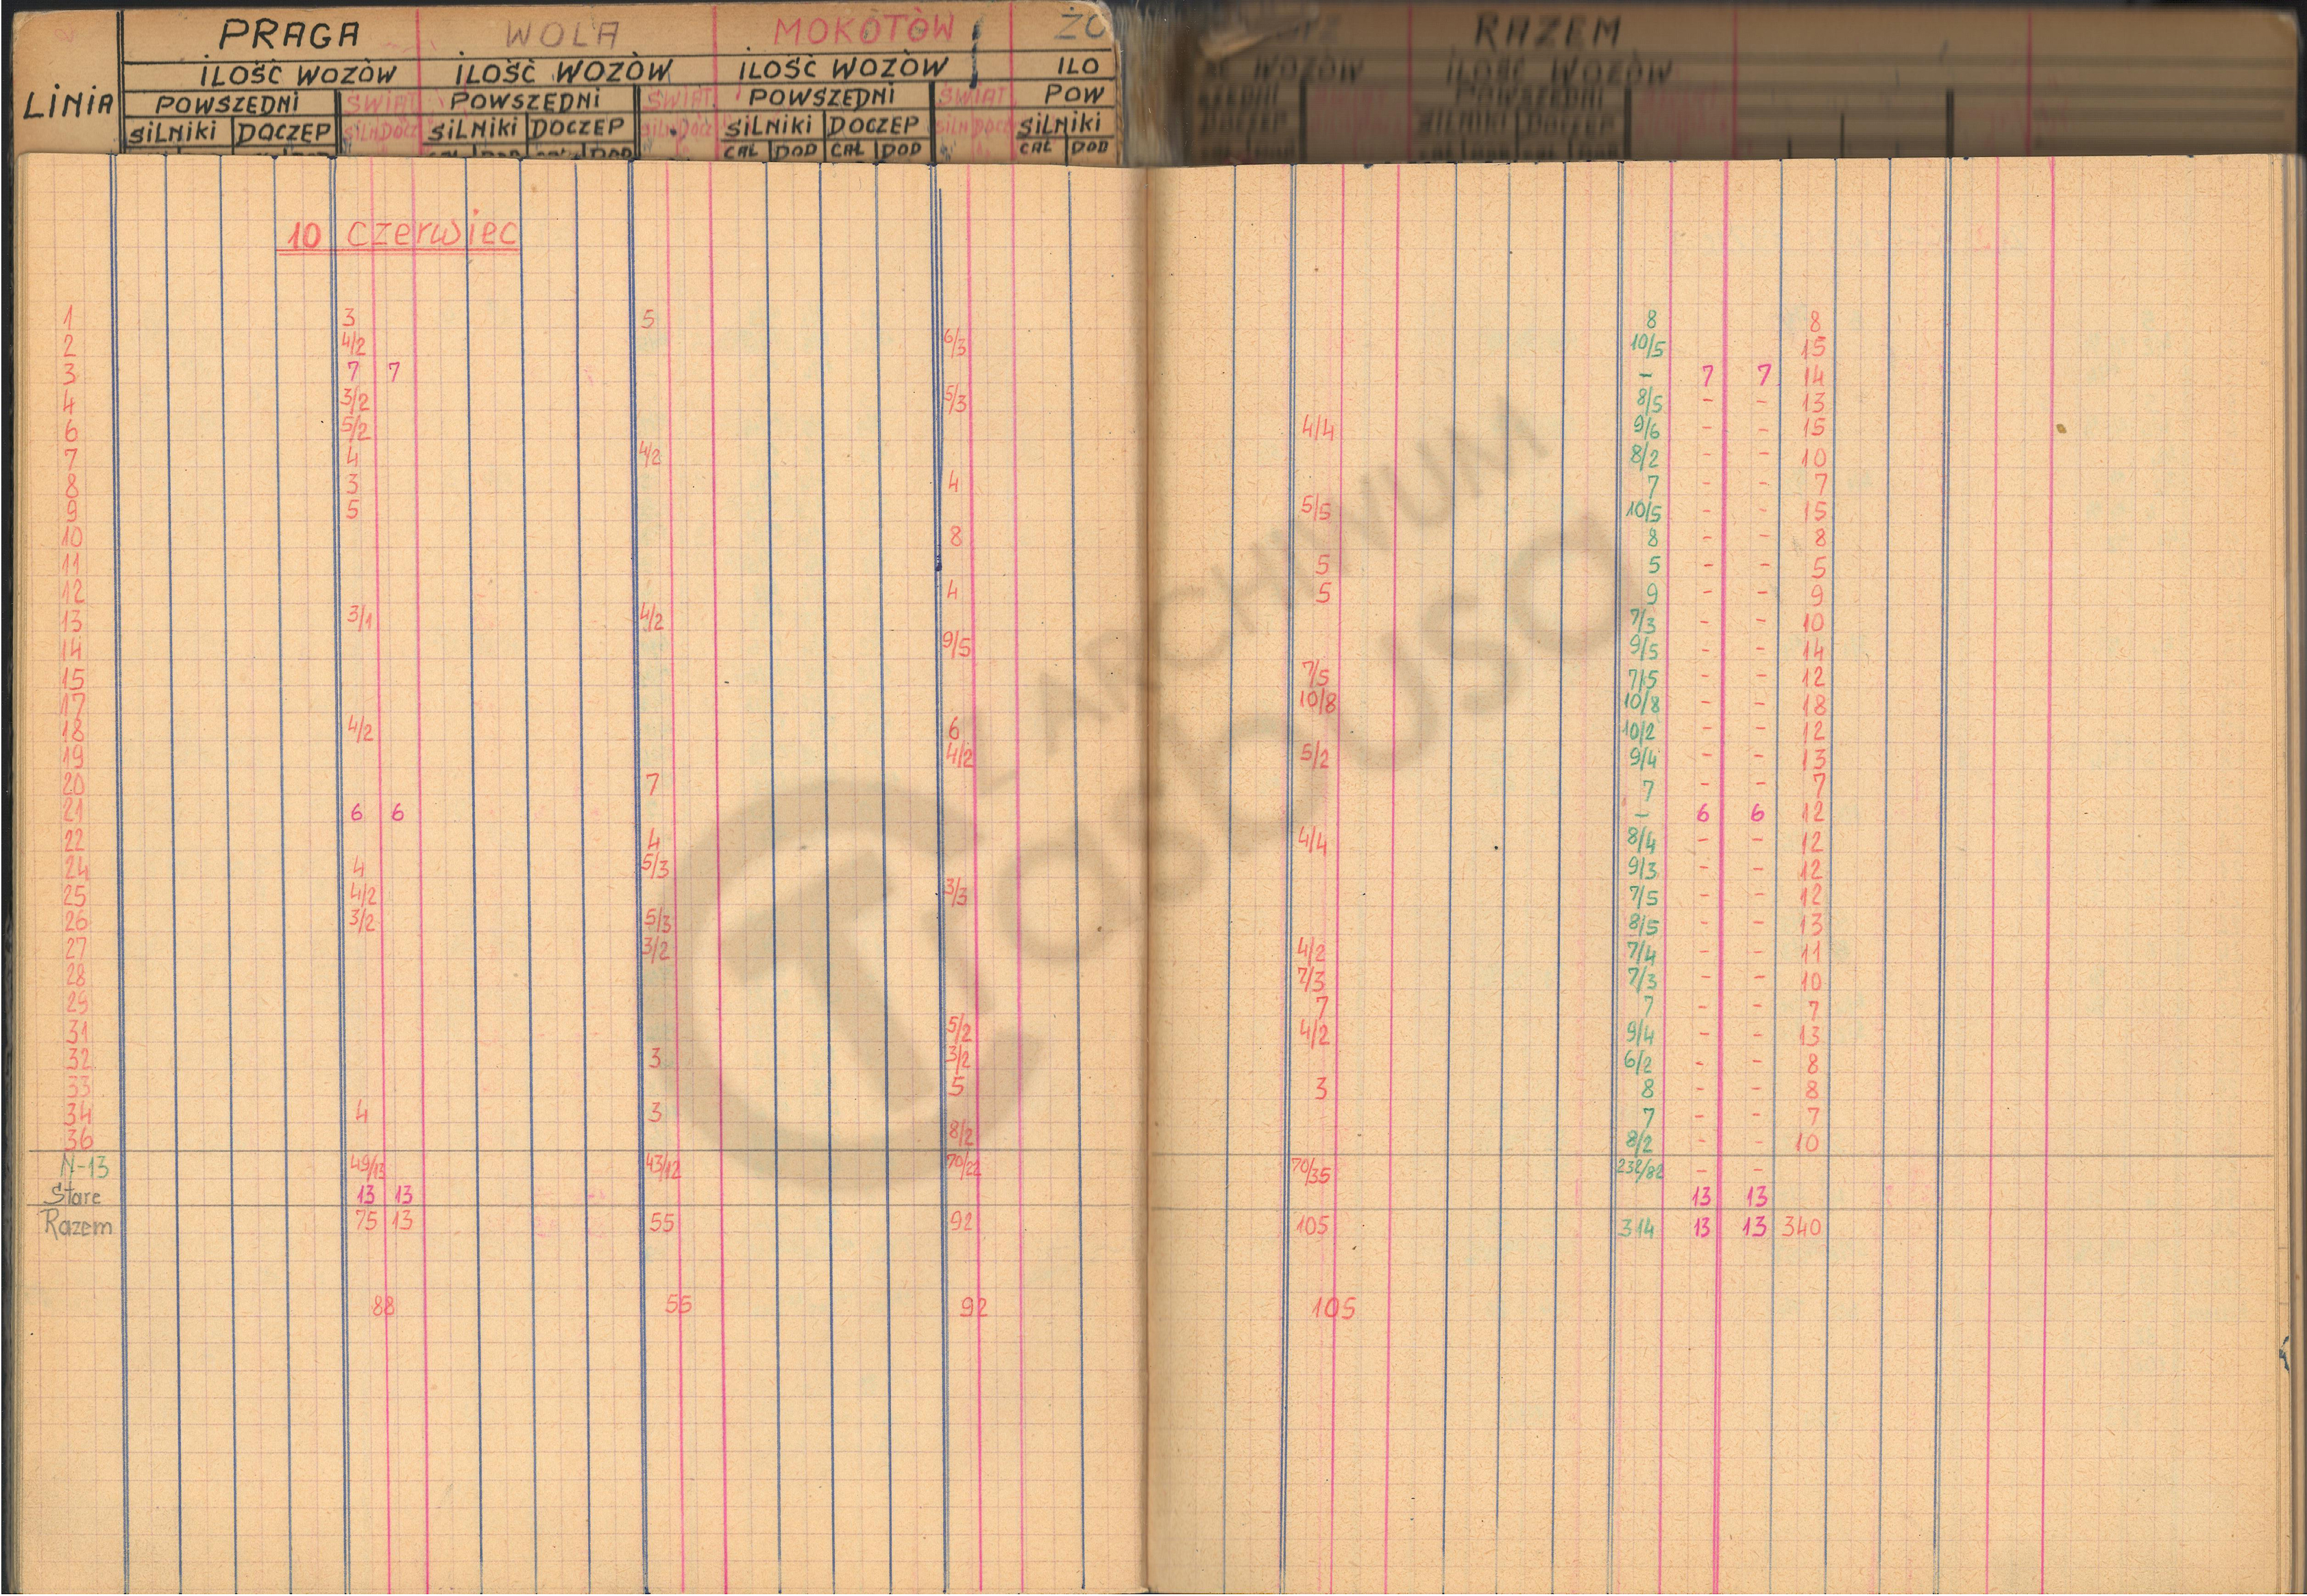 PRAGA WOLA MOKOTÓW ŻO RAZEM
ILOŚĆ WOZÓW ILOŚĆ WOZÓW ILOŚĆ WOZÓW ILO ŚĆ WOZÓW ILOŚĆ WOZÓW
LINIA POWSZEDNI ŚWIĄT POWSZEDNI ŚWIĄT POWSZEDNI ŚWIĄT POW POWSZEDNI
SILNIKI DOCZEP SILN DOCZ SILNIKI DOCZEP SILN DOCZ SILNIKI DOCZEP SILN DOCZ SILNIKI DOCZEP SILNIKI DOCZEP
CAŁ DOD CAŁ DOD CAŁ DOD CAŁ DOD CAŁ DOD
10 czerwiec
1 3 5 8 8
2 4/2 6/3 10/5 15
3 7 7 - 7 7 14
4 3/2 5/3 8/5 - - 13
6 5/2 4/4 9/6 - - 15
7 4 4/2 8/2 - - 10
8 3 4 7 - - 7
9 5 5/5 10/5 - - 15
10 8 8 - - 8
11 5 5 - - 5
12 4 5 9 - - 9
13 3/1 4/2 7/3 - - 10
14 9/5 9/5 - - 14
15 7/5 7/5 - - 12
17 10/8 10/8 - - 18
18 4/2 6 10/2 - - 12
19 4/2 5/2 9/4 - - 13
20 7 7 - - 7
21 6 6 - 6 6 12
22 4 4/4 8/4 - - 12
24 4 5/3 9/3 - - 12
25 4/2 3/3 7/5 - - 12
26 3/2 5/3 8/5 - - 13
27 3/2 4/2 7/4 - - 11
28 7/3 7/3 - - 10
29 7 7 - - 7
31 5/2 4/2 9/4 - - 13
32 3 3/2 6/2 - - 8
33 5 3 8 - - 8
34 4 3 7 - - 7
36 8/2 8/2 - - 10
N-13 49/13 43/12 70/22 70/35 232/82 - -
Stare 13 13 13 13
Razem 75 13 55 92 105 314 13 13 340
88 55 92 105
Z ARCHIWUM
TASBUSA